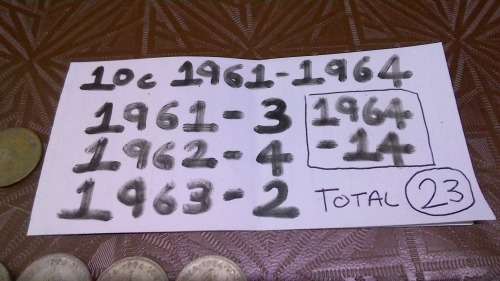 10c 1961-1964
1961-3
1962-4
1963-2
1964
-14
TOTAL 23